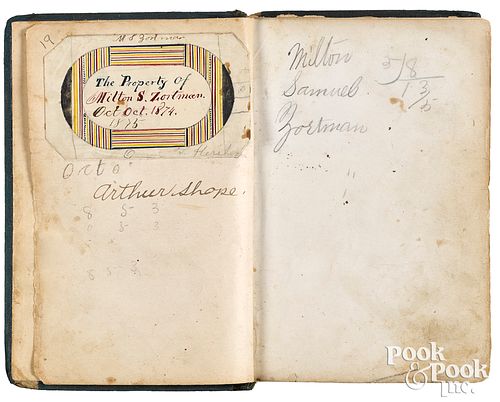 19
M S Zortman
The Property Of
Milton S. Zortman.
Oct Oct. 1874.
1875
Octo
Arthur Shope.
8 5 3
0 3 3
8 5 3
Milton
Samuel
Zortman
5 18
1 3
5
Pook
& Pook
Inc.